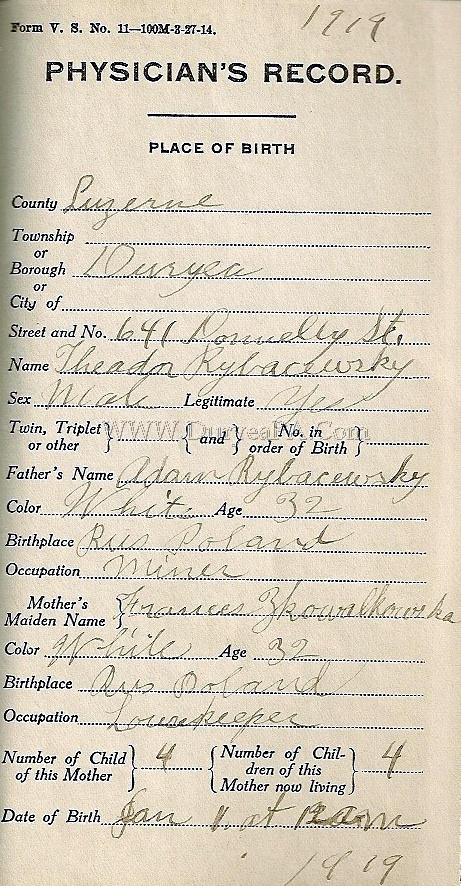 1919
Form V. S. No. 11—100M-3-27-14.
PHYSICIAN'S RECORD.
PLACE OF BIRTH
County Luzerne
Township
or
Borough Duryea
or
City of
Street and No. 641 Donnelly St.
Name Theador Rybacewsky
Sex Male Legitimate Yes
Twin, Triplet or other } { and } { No. in order of Birth }
WWW.DuryeaPA.Com
Father's Name Adam Rybacewsky
Color White Age 32
Birthplace Rus Poland
Occupation Miner
Mother's Maiden Name } Frances
Color White Age 32
Birthplace Rus Poland
Occupation Housekeeper
Number of Child of this Mother } 4 { Number of Children of this Mother now living } 4
Date of Birth Jan 11 at am
1919